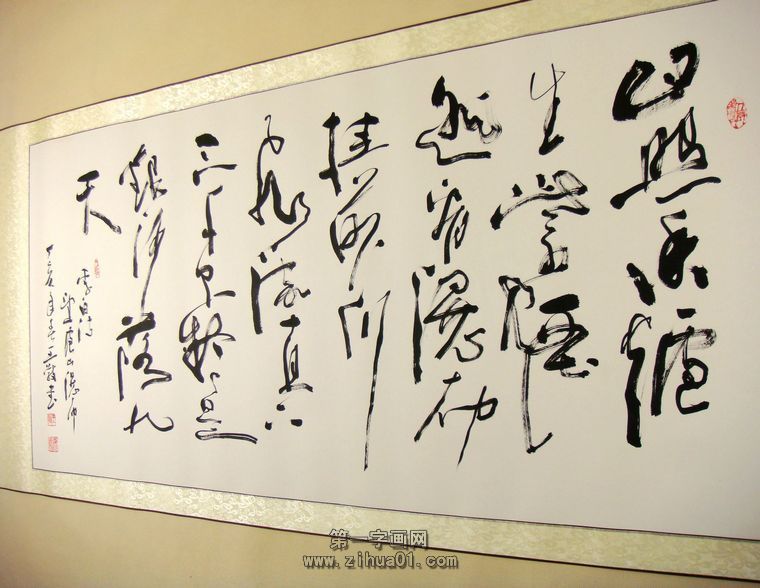 日照香爐
生紫煙
遥看瀑布
挂前川
飛流直下
三千尺疑是
銀河落九
天
李白詩
望庐山瀑布
第一字画网
www.zihua01.com